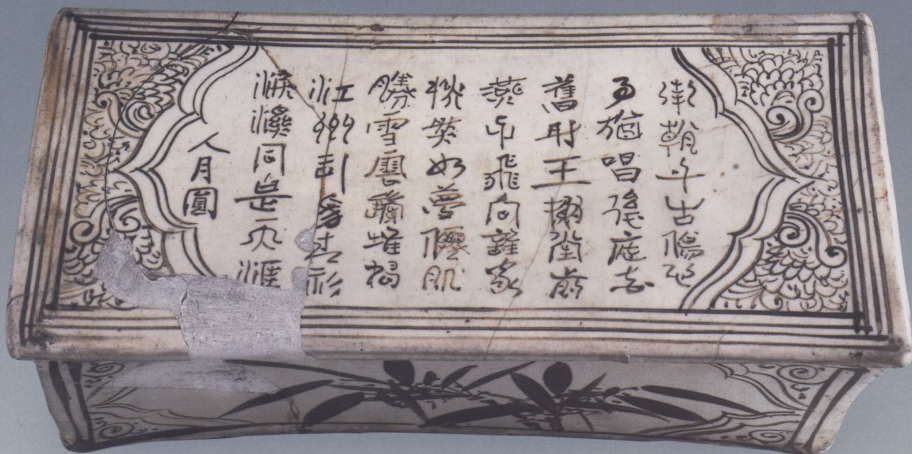 千古傷心
事猶唱後庭花
舊時王榭堂前
燕子飛向誰家
恍然如夢僊肌
勝雪雲鬢堆鴉
江州司馬青衫
淚濕同是天涯
人月圓